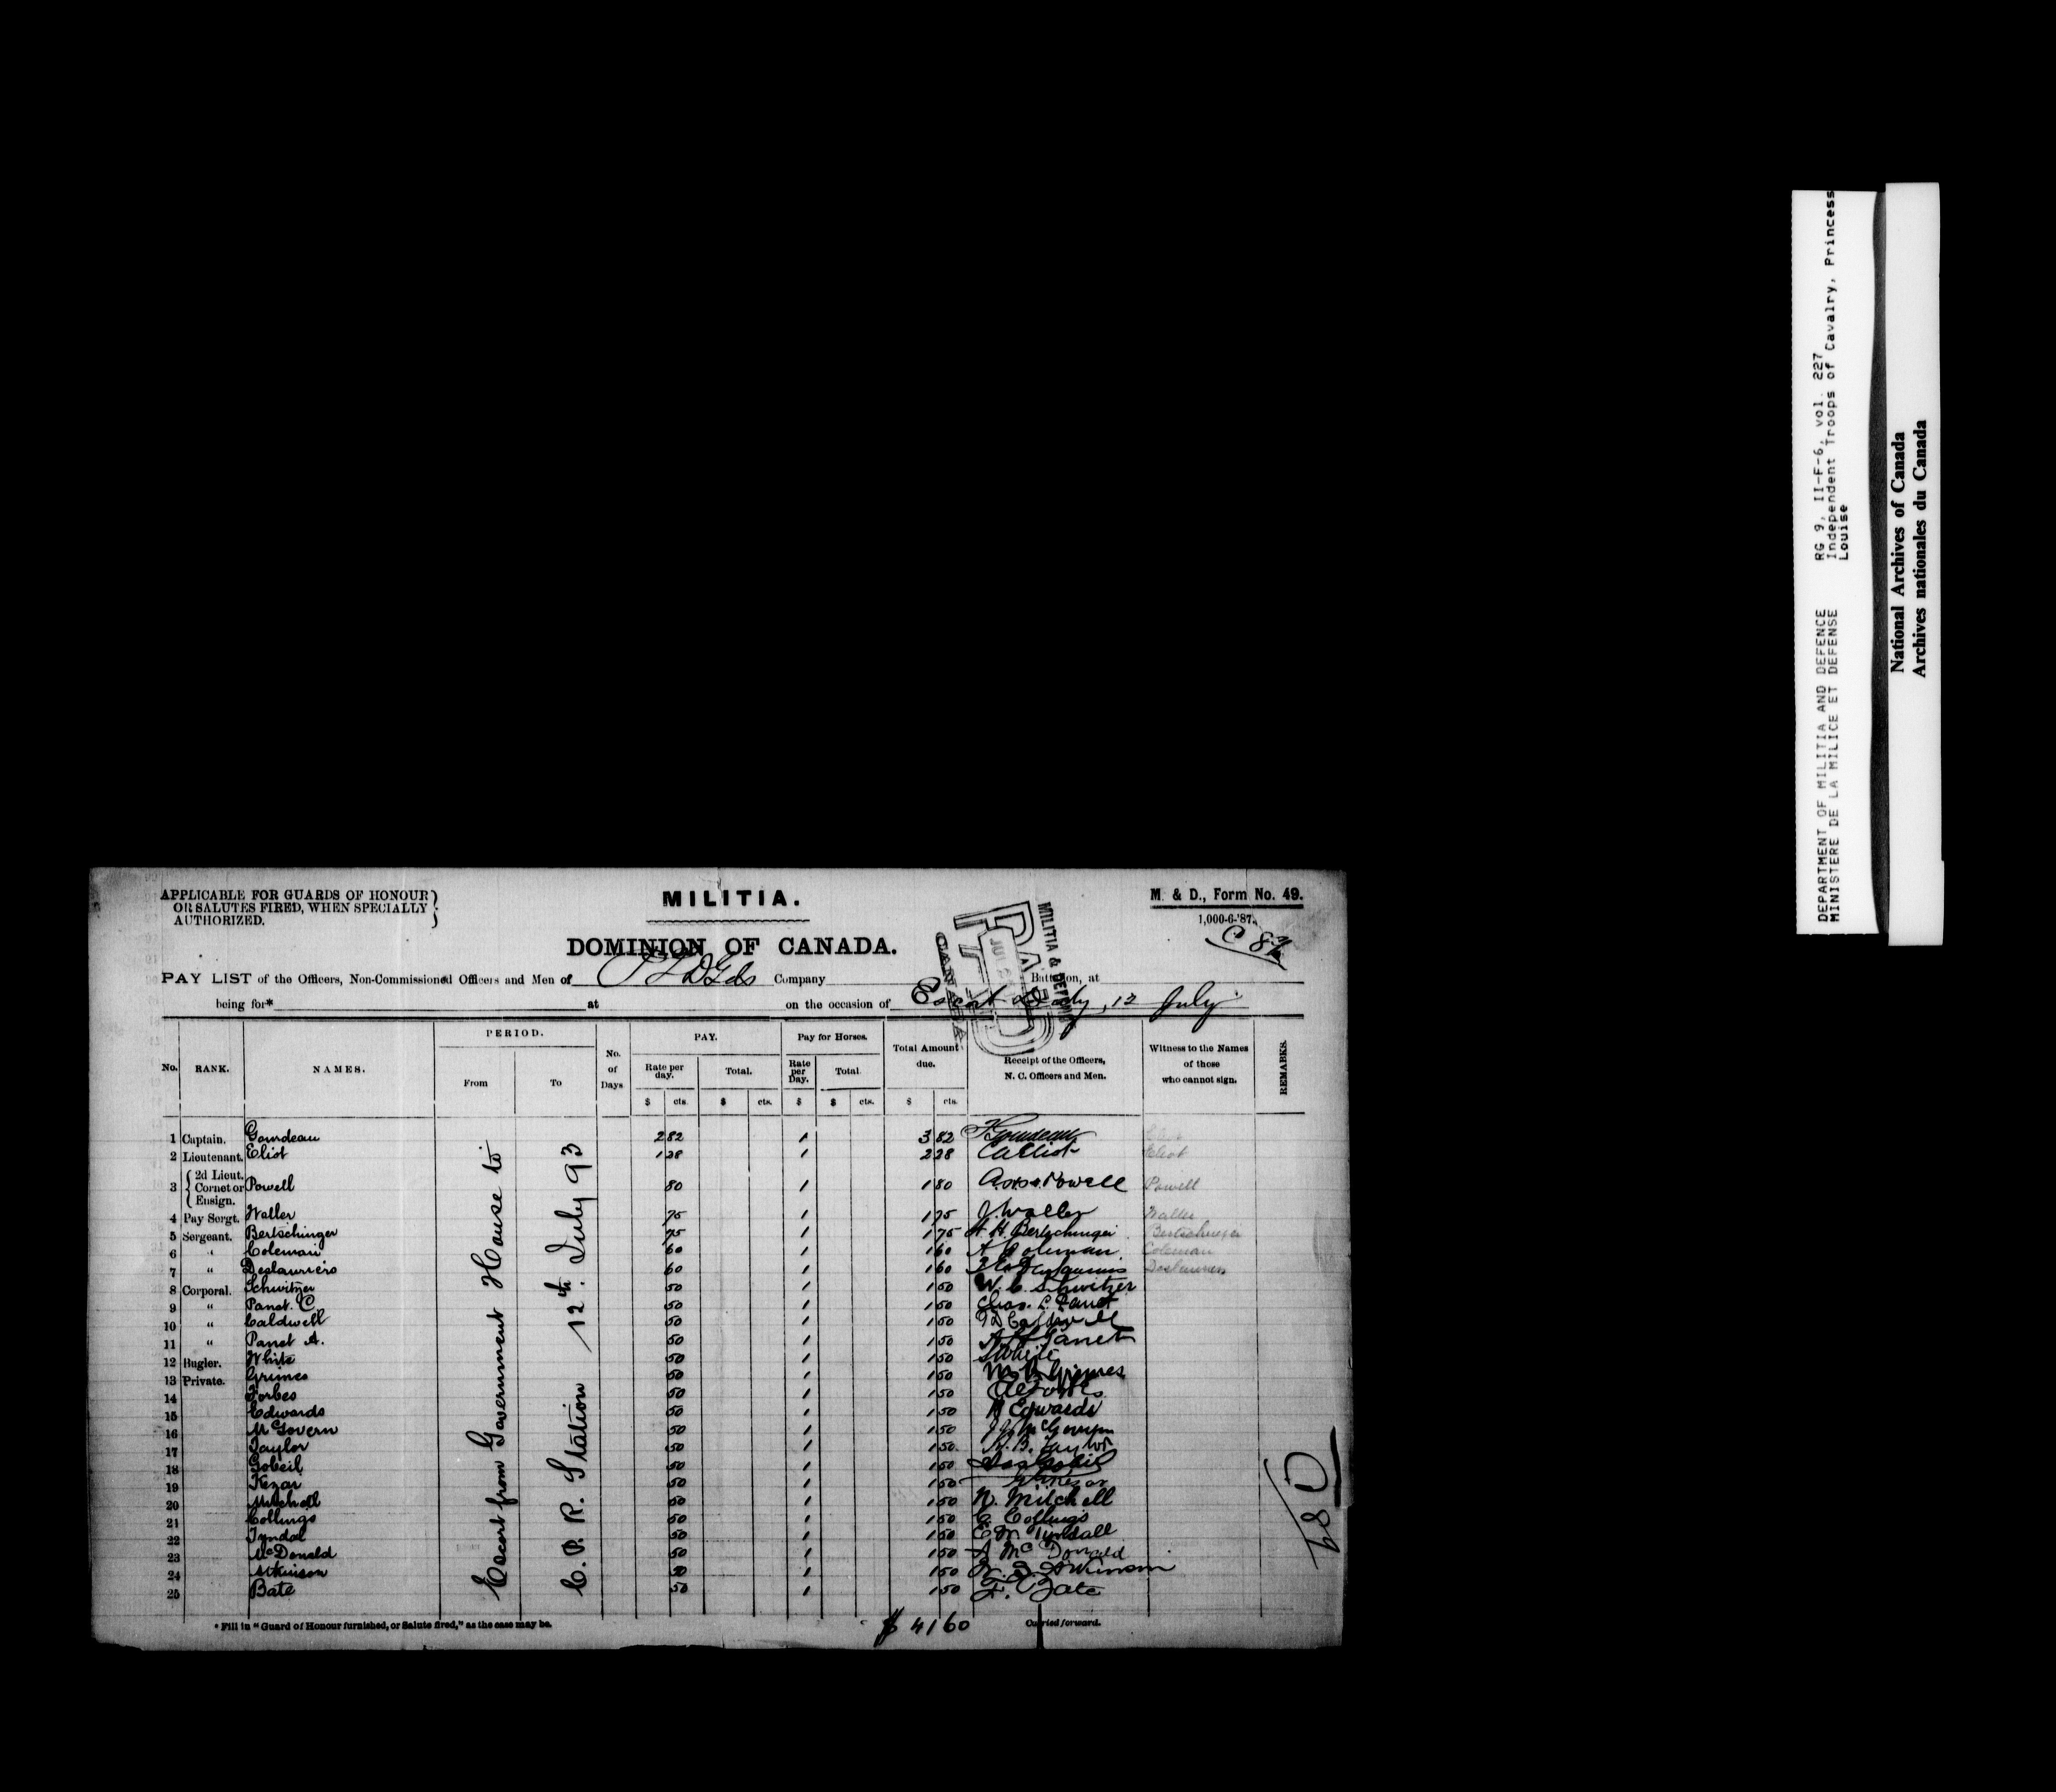 APPLICABLE FOR GUARDS OF HONOUR
OR SALUTES FIRED, WHEN SPECIALLY
AUTHORIZED.
MILITIA.
M. & D., Form No. 49.
1,000-6-'87.
DOMINION OF CANADA.
MILITIA & DEFENCE
PAID
CANADA
PAY LIST of the Officers, Non-Commissioned Officers and Men of P L D Gds Company Battalion, at
being for* at on the occasion of Escort duty, 12 July
No. RANK. NAMES. PERIOD. From To No. of Days PAY. Rate per day. Total. Pay for Horses. Rate per Day. Total Total Amount due. Receipt of the Officers, N. C. Officers and Men. Witness to the Names of those who cannot sign. REMARKS.
$ cts. $ cts. $ $ cts. $ cts.
Escort from Government House to
C. P. R. Station 12th July 93
1 Captain. Gourdeau 2 82 1 3 82 Gourdeau
2 Lieutenant. Eliot 1 28 1 2 28 Eliot Eliot
3 2d Lieut. Cornet or Ensign. Powell 80 1 1 80 Powell Powell
4 Pay Sergt. Waller 75 1 1 75 J. Waller Waller
5 Sergeant. Bertschinger 75 1 1 75 H. H. Bertschinger Bertschinger
6 " Coleman 60 1 1 60 A Coleman Coleman
7 " Deslauriers 60 1 1 60 Deslauriers Deslauriers
8 Corporal. Schwitzer 50 1 1 50 W. C. Schwitzer
9 " Panet. C. 50 1 1 50 Chas. L. Panet
10 " Caldwell 50 1 1 50 Caldwell
11 " Panet A. 50 1 1 50 Panet
12 Bugler. White 50 1 1 50 White
13 Private. Grimes 50 1 1 50 Grimes
14 Forbes 50 1 1 50 Forbes
15 Edwards 50 1 1 50 Edwards
16 McGovern 50 1 1 50 McGovern
17 Taylor 50 1 1 50 A. B. Taylor
18 Gobeil 50 1 1 50 Gobeil
19 Kezar 50 1 1 50 Kezar
20 Mitchell 50 1 1 50 N. Mitchell
21 Collings 50 1 1 50 C Collings
22 Tyndal 50 1 1 50 Tyndall
23 McDonald 50 1 1 50 A McDonald
24 Atkinson 50 1 1 50 Atkinson
25 Bate 50 1 1 50 F. Bate
* Fill in "Guard of Honour furnished, or Salute fired," as the case may be.
$ 41 60
Carried forward.
DEPARTMENT OF MILITIA AND DEFENCE RG 9, II-F-6, vol. 227
MINISTERE DE LA MILICE ET DEFENSE Independent Troops of Cavalry, Princess
Louise
National Archives of Canada
Archives nationales du Canada